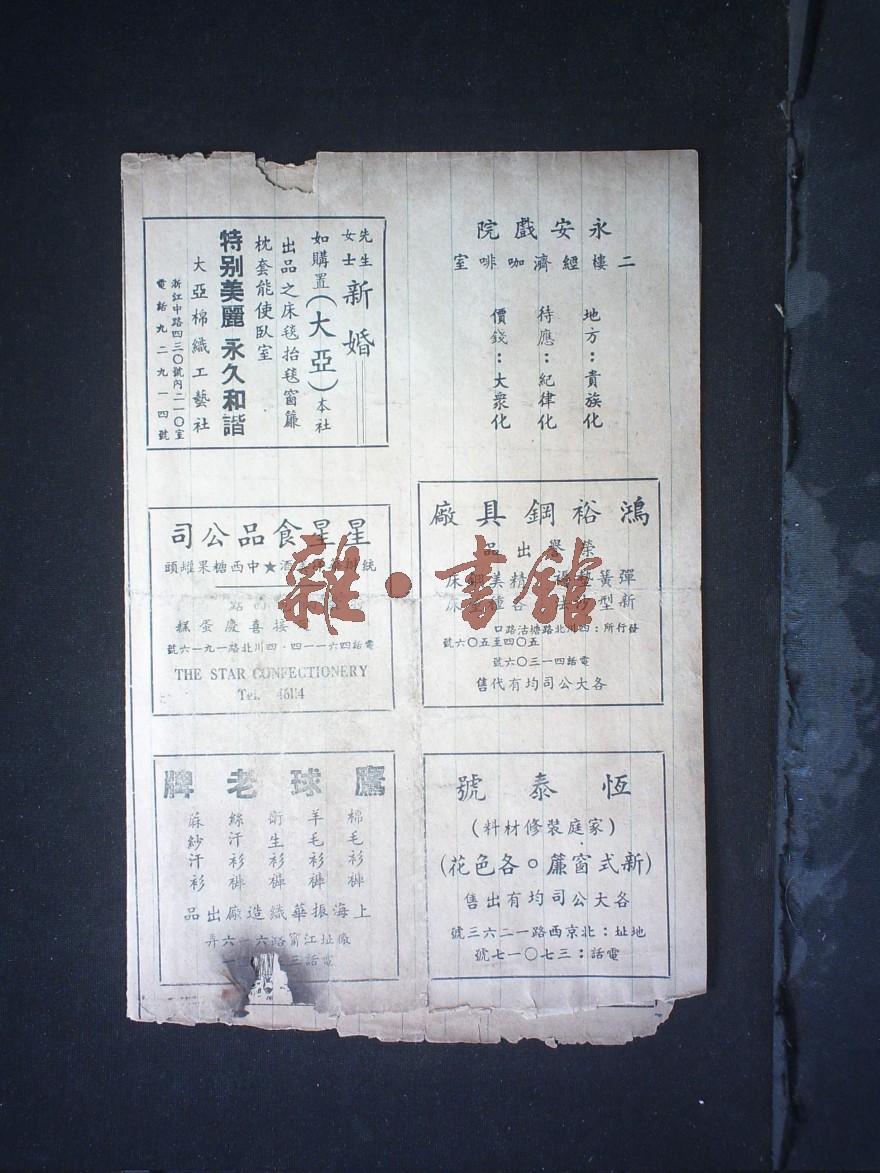 永安戲院
二樓經濟咖啡室
地方：貴族化
待應：紀律化
價錢：大衆化
先生
女士
新婚
如購置(大亞)本社
出品之床毯抬毯窗簾
枕套能使臥室
特别美麗 永久和諧
大亞棉織工藝社
浙江中路四三〇號內二一〇室
電話九二九一四號
鴻裕鋼具廠
榮譽出品
彈簧 精美鋼床
新型沙 各種 床
發行所：四川北路塘沽路口
五〇四至五〇六號
電話四一三〇六號
各大公司均有代售
星星食品公司
統 酒★中西糖果罐頭
點
接喜慶蛋糕
電話四六一一四·四川北路一九一六號
THE STAR CONFECTIONERY
Tel. 46114
雜·書館
恆泰號
(家庭裝修材料)
(新式窗簾。各色花)
各大公司均有出售
地址：北京西路一二六三號
電話：三七〇一七號
鷹球老牌
棉毛衫褲
羊毛衫褲
衛生衫褲
絲汗衫褲
蔴紗汗衫
上海振華織造廠出品
廠址江甯路六一六弄
電話三